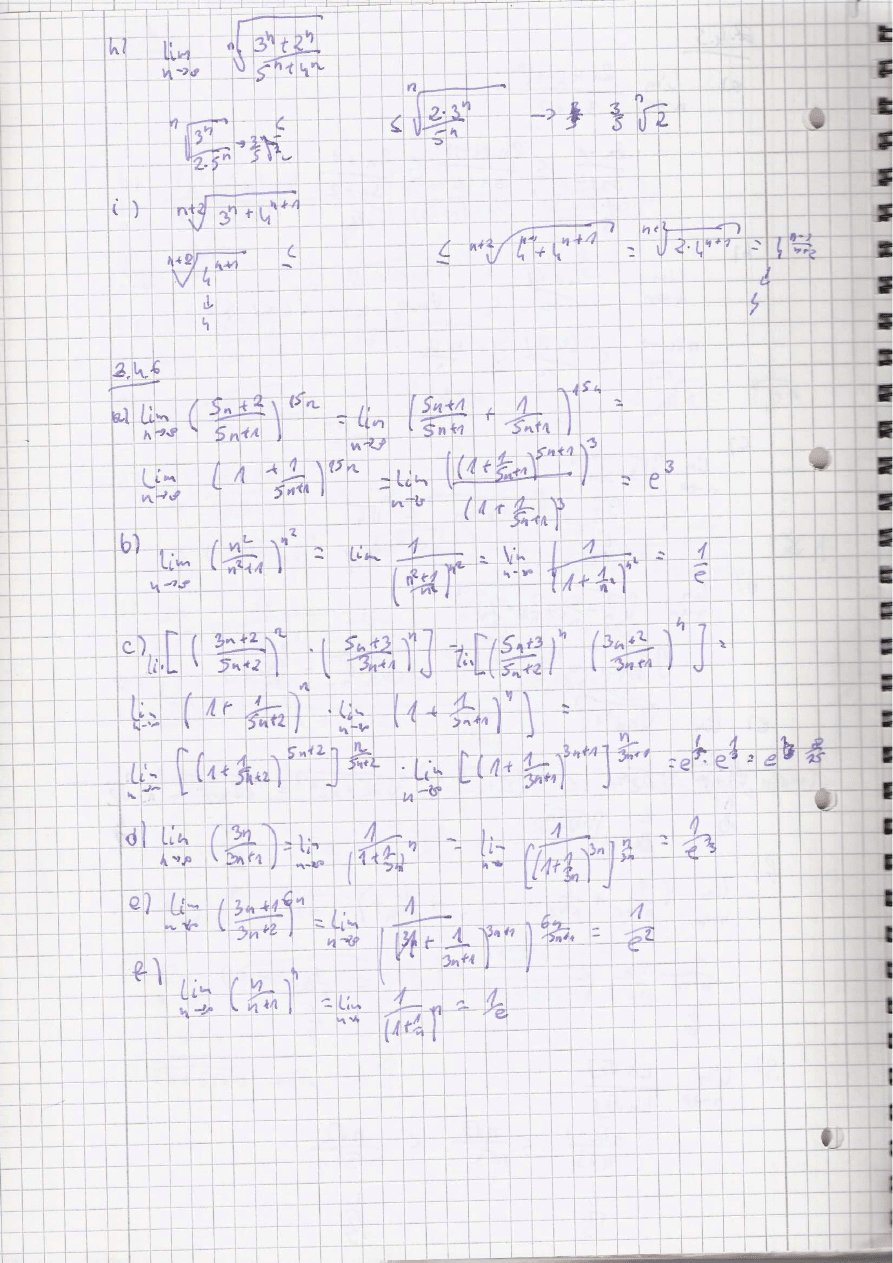 h) lim n→∞ ⁿ√((3ⁿ+2ⁿ)/(5ⁿ+4ⁿ))
ⁿ√(3ⁿ/(2·5ⁿ)) ≤ ≤ ⁿ√((2·3ⁿ)/5ⁿ) → 3/5 ⁿ√2
i) ⁿ⁺²√(3ⁿ+4ⁿ⁺¹)
ⁿ⁺²√(4ⁿ⁺¹) ≤ ≤ ⁿ⁺²√(4ⁿ⁺¹+4ⁿ⁺¹) = ⁿ⁺²√(2·4ⁿ⁺¹) = 4^((n+1)/(n+2))
↓ ↓
4 4
2.4.6
a) lim n→∞ ((5n+2)/(5n+1))^(15n) = lim n→∞ ((5n+1)/(5n+1) + 1/(5n+1))^(15n) =
lim n→∞ (1 + 1/(5n+1))^(15n) = lim n→∞ ((1+1/(5n+1))^(5n+1))^3/(1+1/(5n+1))^3 = e^3
b) lim n→∞ (n²/(n²+1))^(n²) = lim 1/((n²+1)/n²)^(n²) = lim n→∞ 1/(1+1/n²)^(n²) = 1/e
c) li.[((3n+2)/(5n+2))^n · ((5n+3)/(3n+1))^n] = li[((5n+3)/(5n+2))^n ((3n+2)/(3n+1))^n] =
lim n→∞ (1+ 1/(5n+2))^n · lim n→∞ (1 + 1/(3n+1))^n] =
lim n→∞ [(1+1/(5n+2))^(5n+2)]^(n/(5n+2)) · lim n→∞ [(1+1/(3n+1))^(3n+1)]^(n/(3n+1)) = e^(1/5) · e^(1/3) = e
d) lim n→∞ (3n/(3n+1)) = lim n→∞ 1/(1+1/3n)^n = lim n→∞ 1/[((1+1/3n)^(3n)]^(n/3n) = 1/e^(1/3)
e) lim n→∞ ((3n+1)/(3n+2))^(6n) = lim n→∞ 1/((1 + 1/(3n+1))^(3n+1))^(6n/(3n+1)) = 1/e²
f) lim n→∞ (n/(n+1))^n = lim n→∞ 1/(1+1/n)^n = 1/e